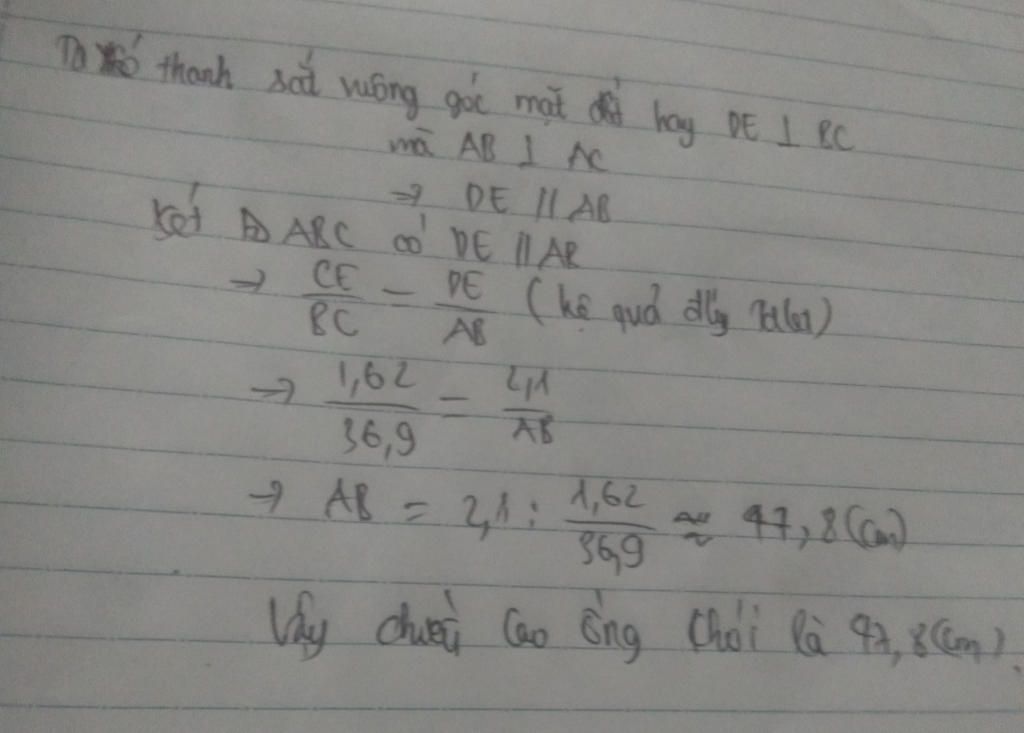 Ta có thanh sắt vuông góc mặt đất hay DE ⊥ BC
mà AB ⊥ AC
→ DE // AB
Xét Δ ABC có DE // AB
→ CE/BC = DE/AB (hệ quả đlý Talet)
→ 1,62/36,9 = 2,1/AB
→ AB = 2,1 : 1,62/36,9 ≈ 47,8 (cm)
Vậy chiều cao ống khói là 47,8 (cm).